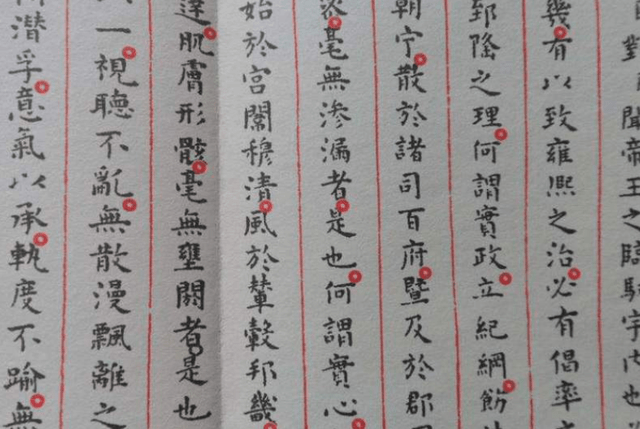 對聞帝王之臨馭宇內也
幾有以致雍熙之治必有倡率
郅隆之理何謂實政立紀綱飭
朝宁散於諸司百府暨及於郡
毫無渗漏者是也何謂實心
始於宮闈穆清風於輦轂邦畿
達肌膚形骸毫無壅閼者是也
一視聽不亂無散漫飄離之
潛孚意氣以承軌度不踰無